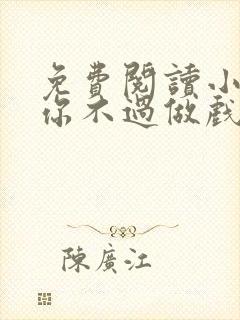 免費閱讀小
你不過做戲
陳廣江